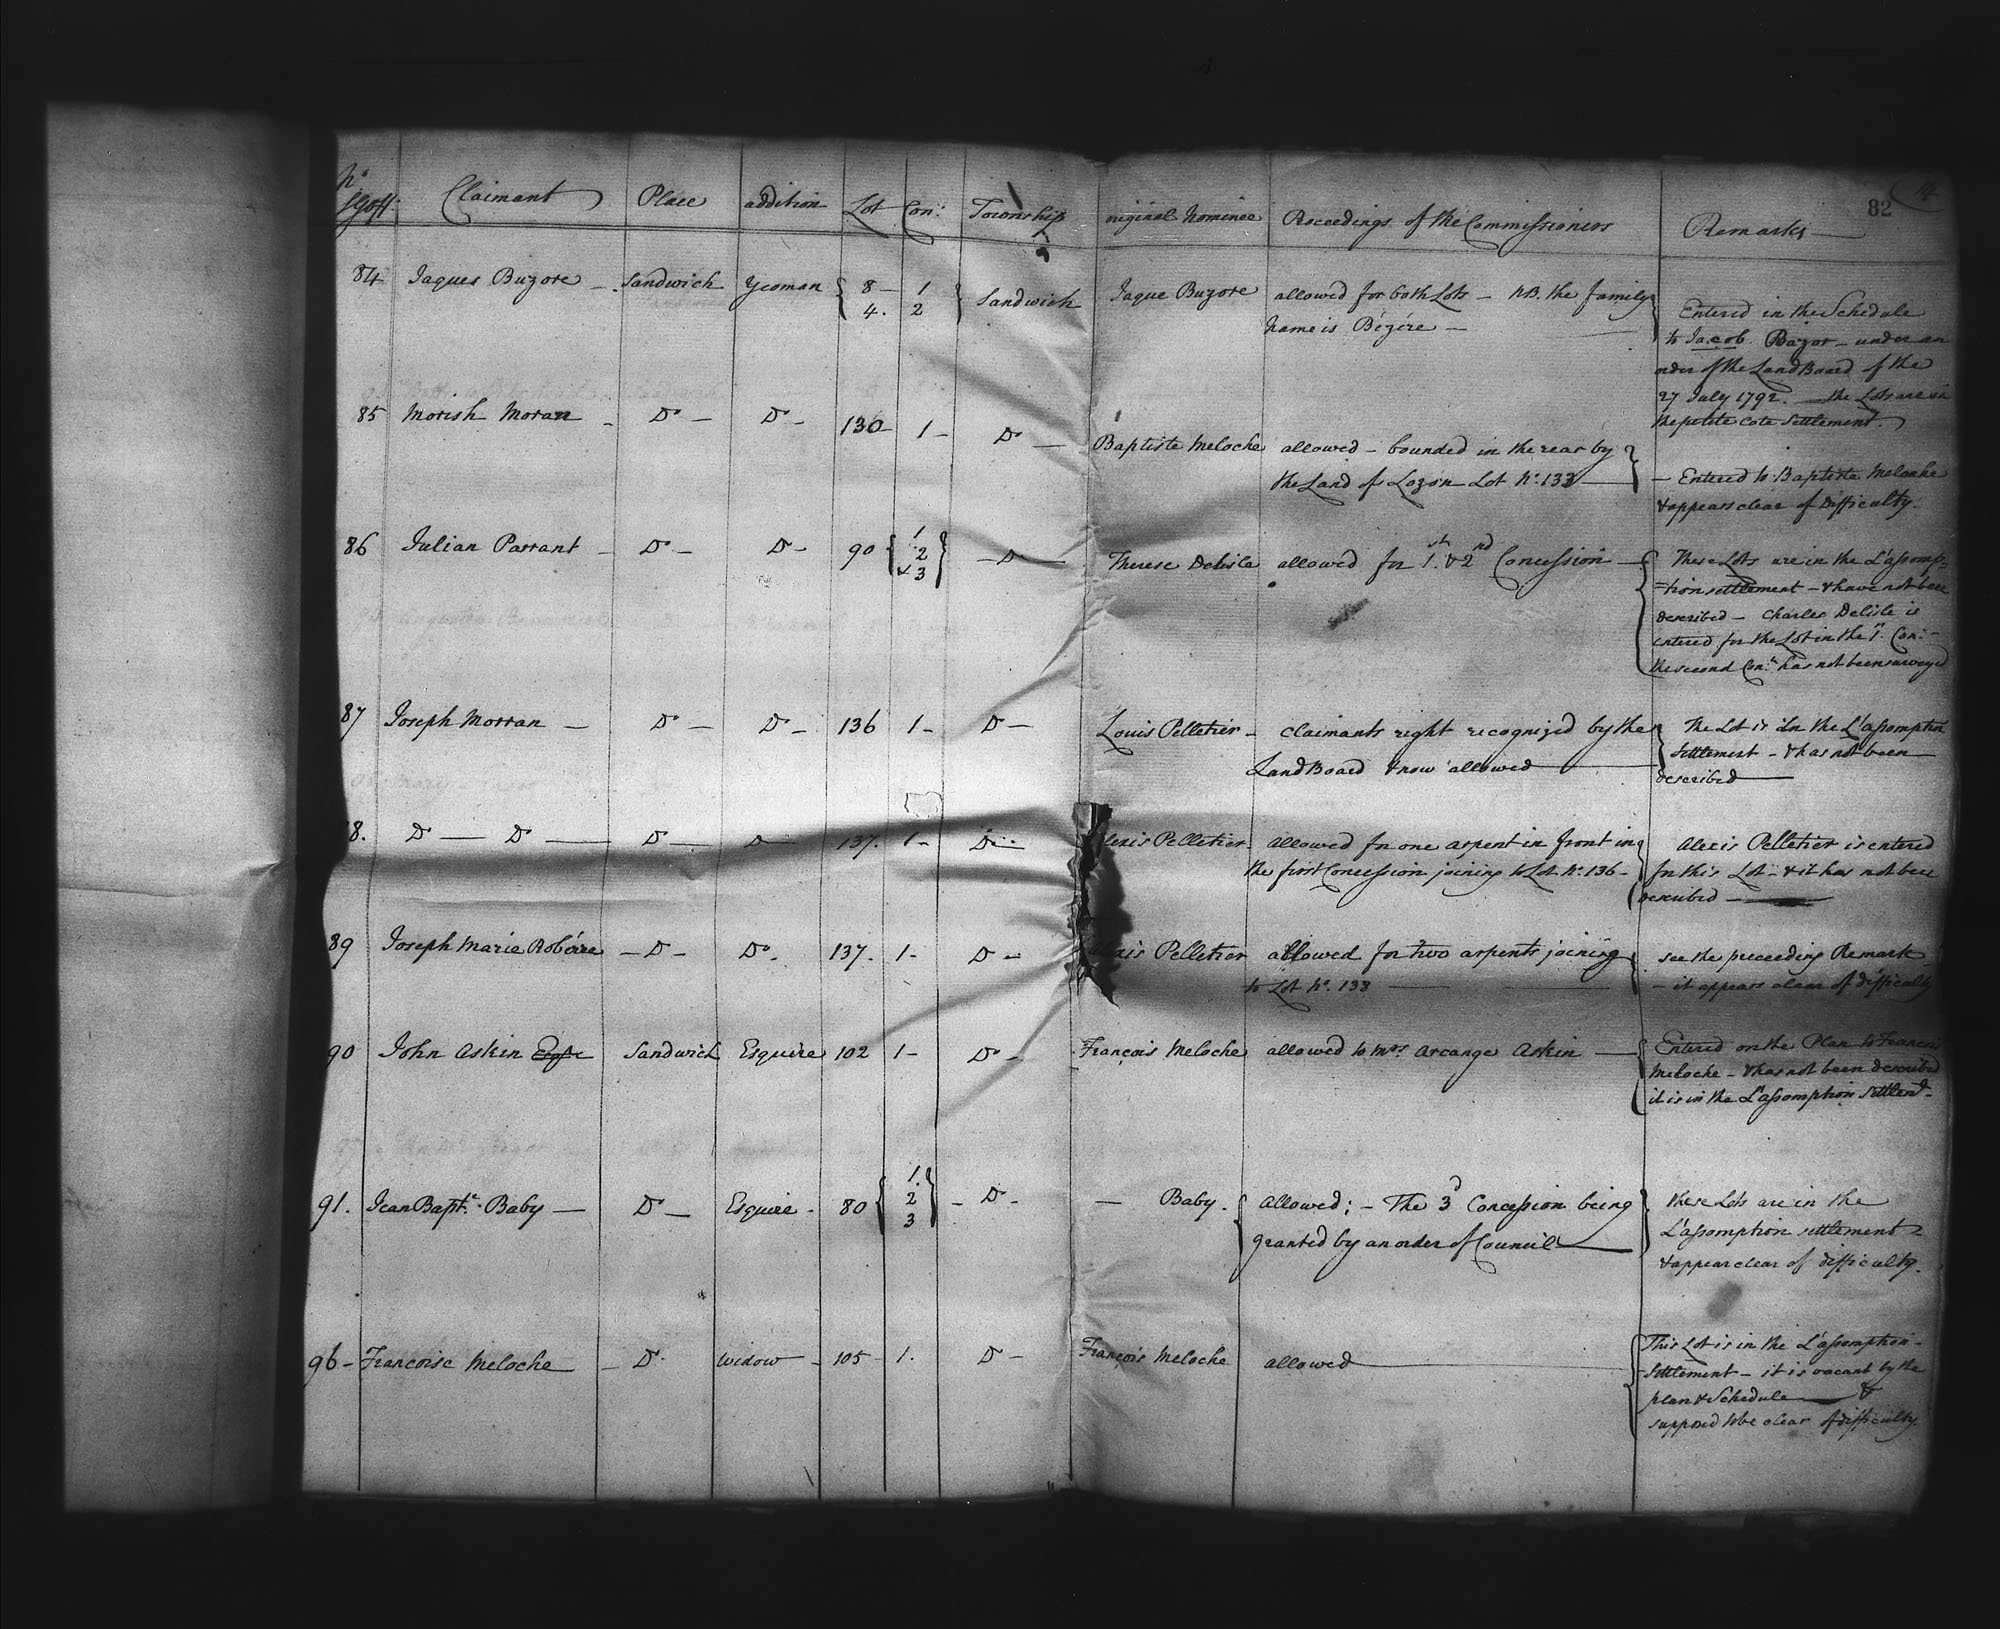 82 14
No Claimant Place addition Lot Con: Township original Nominee Proceedings of the Commissioners Remarks
84 Jaques Buzore - Sandwich Yeoman { 8 - 1 } Sandwich Jaque Buzore allowed for both Lots - NB. the family
4. 2 name is Bézére -
Entered in the Schedule
to Jacob Bazor - under an
order of the Land Board of the
27 July 1792. - the Lots are in
the petite Cote Settlement.
85 Morish Moran - Do - Do - 130 - 1 - Do - Baptiste Meloche allowed - bounded in the rear by
the Land of Lozon Lot No. 133
- Entered to Baptiste Meloche
& appears clear of difficulty.
86 Julian Parrant - Do - Do - 90 { 1. 2 & 3 } - Do - Therese Delisle allowed for 1st. & 2nd Concession -
These Lots are in the L'assomp=
=tion settlement - & have not been
described - Charles Delisle is
entered for the Lot in the 1st. Con: -
the second Con:n has not been surveyed
87 Joseph Morran - Do - Do - 136 1 - Do - Louis Pelletier - Claimants right recognized by the
Land Board & now allowed
The Lot is in the L'assomption
settlement - & has not been
described
8. Do - Do - Do - Do - 137. 1 - Do - lexis Pelletier - allowed for one arpent in front in
the first Concession joining to Lot No. 136 -
Alexis Pelletier is entered
for this Lot - & it has not been
described -
89 Joseph Marie Robére - Do - Do - 137. 1 - Do - exis Pelletier allowed for two arpents joining
to Lot No. 138
see the preceeding Remark
- it appears clear of difficulty
90 John Askin Esqre Sandwich Esquire 102 1 - Do - François Meloche allowed to Mrs Arcange Askin -
Entered on the Plan to Francois
Meloche - & has not been described
it is in the L'assomption Settlemt. -
91. Jean Bapte. Baby - Do - Esquire - 80 { 1. 2 3 } - Do - - Baby. { allowed; - The 3d Concession being
granted by an order of Council
these Lots are in the
L'assomption settlement
& appear clear of difficulty.
96 - Francoise Meloche - Do - Widow - 105 - 1. Do - François Meloche allowed
This Lot is in the L'assomption -
Settlement - it is vacant by the
plan & Schedule - &
supposed to be clear of difficulty.